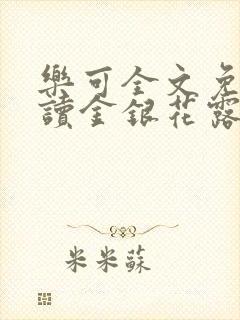 樂可全文免
讀金銀花露
米米蘇